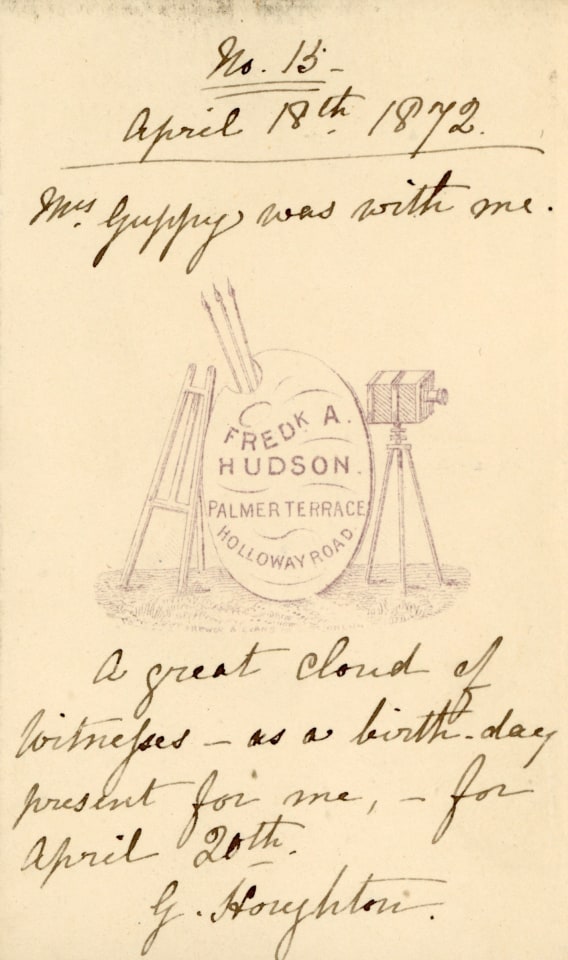 No. 15-
April 18th 1872.
Mrs Guppy was with me.
FREDK A.
HUDSON.
PALMER TERRACE
HOLLOWAY ROAD.
A great cloud of
Witnesses - as a birth-day
present for me, - for
April 20th.
G. Houghton.